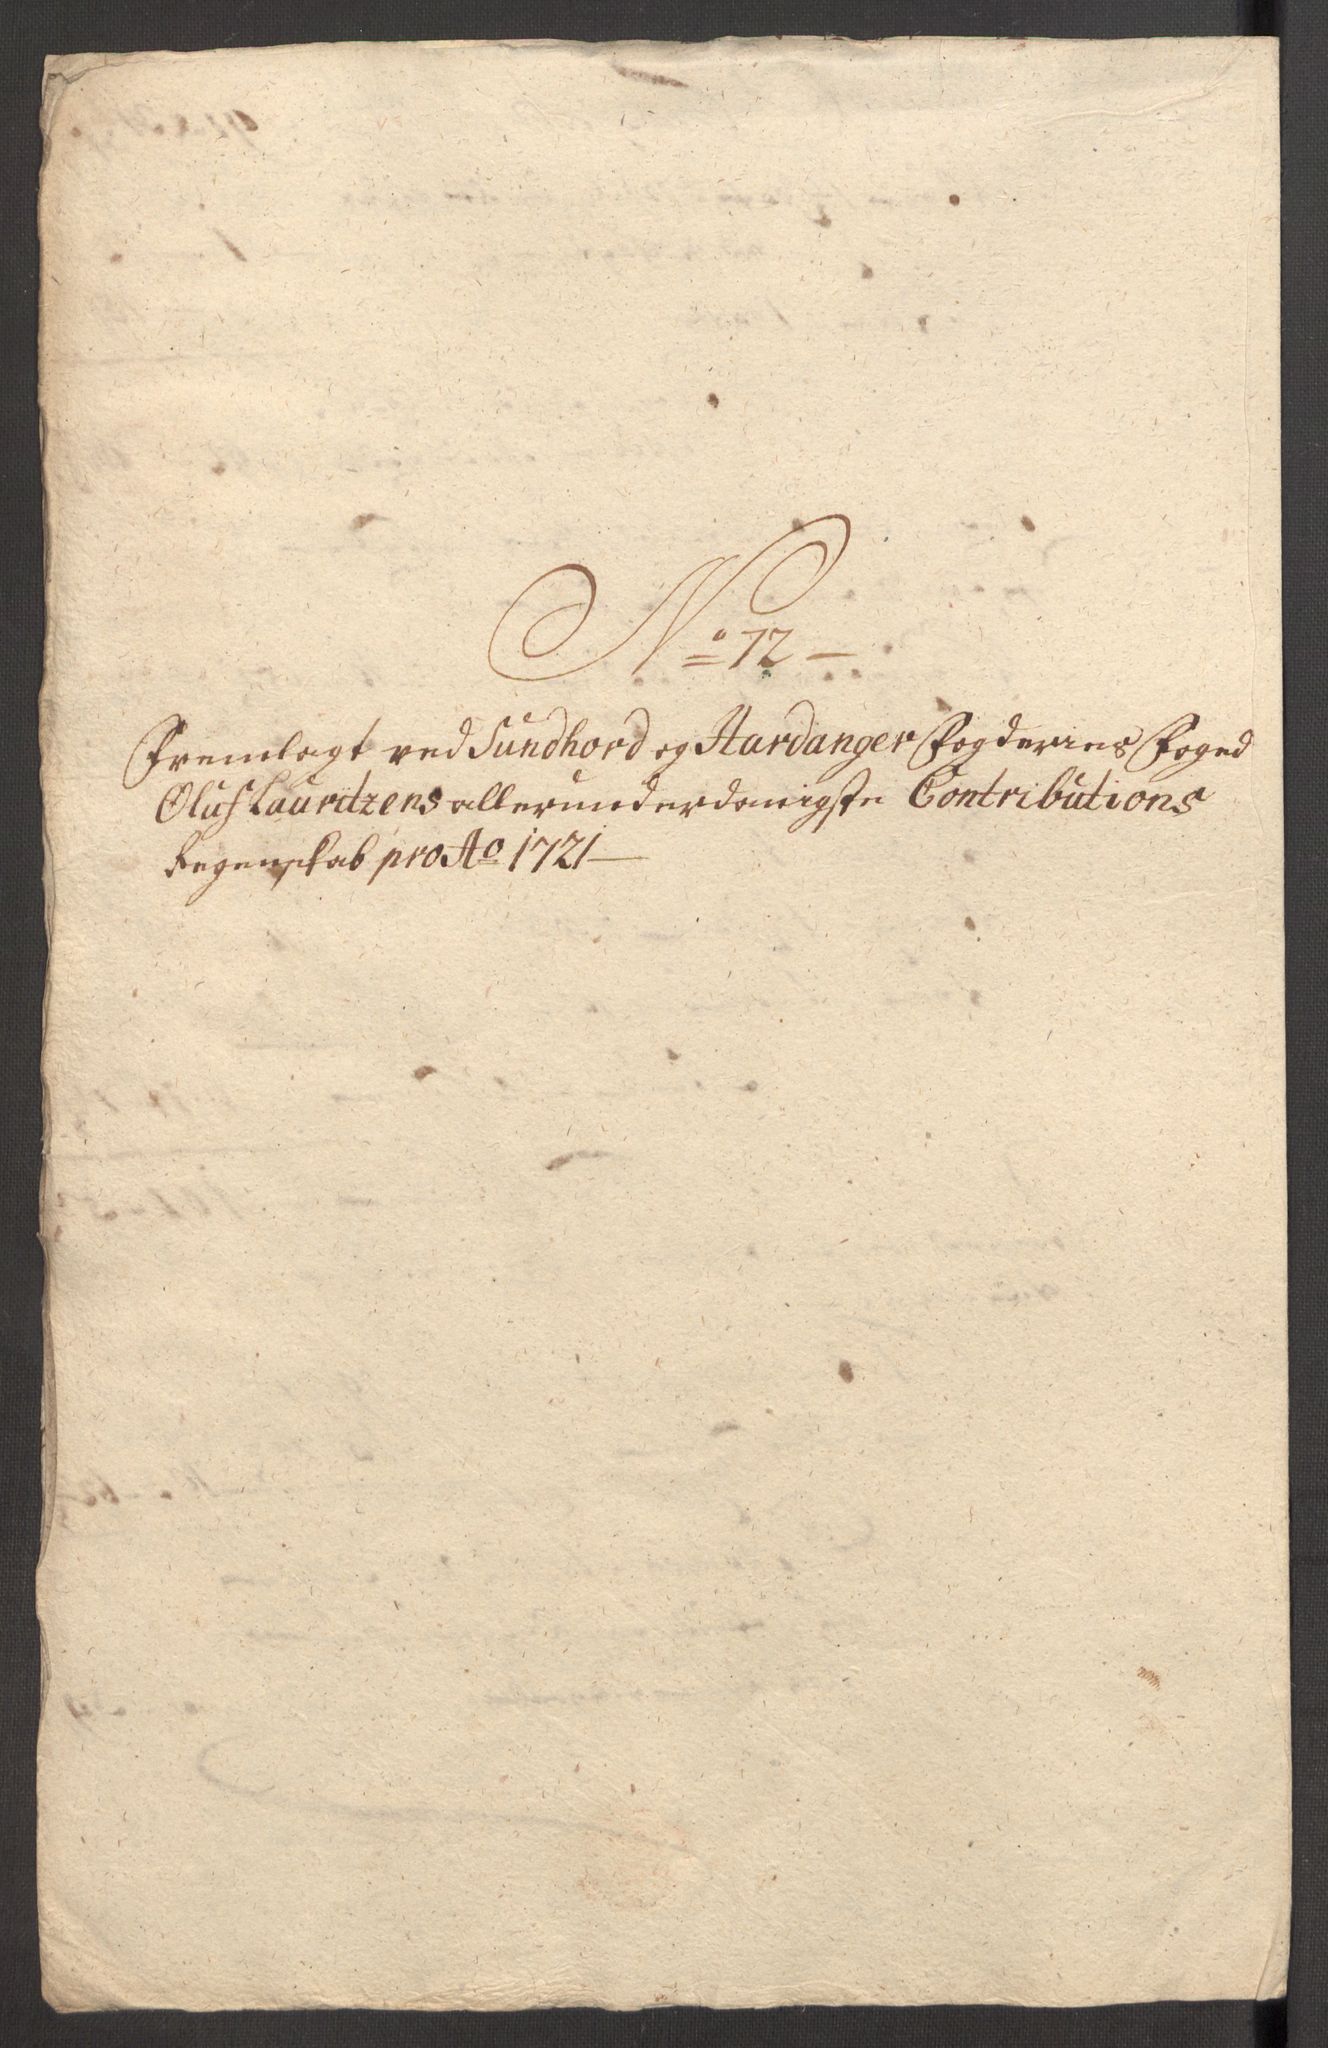 No 12
Fremlagt ved Sundhord og Hardanger Fogderies Foged
Oluf Lauritzens allerunderdanigste Contributions
Regenskab pro Ao 1721